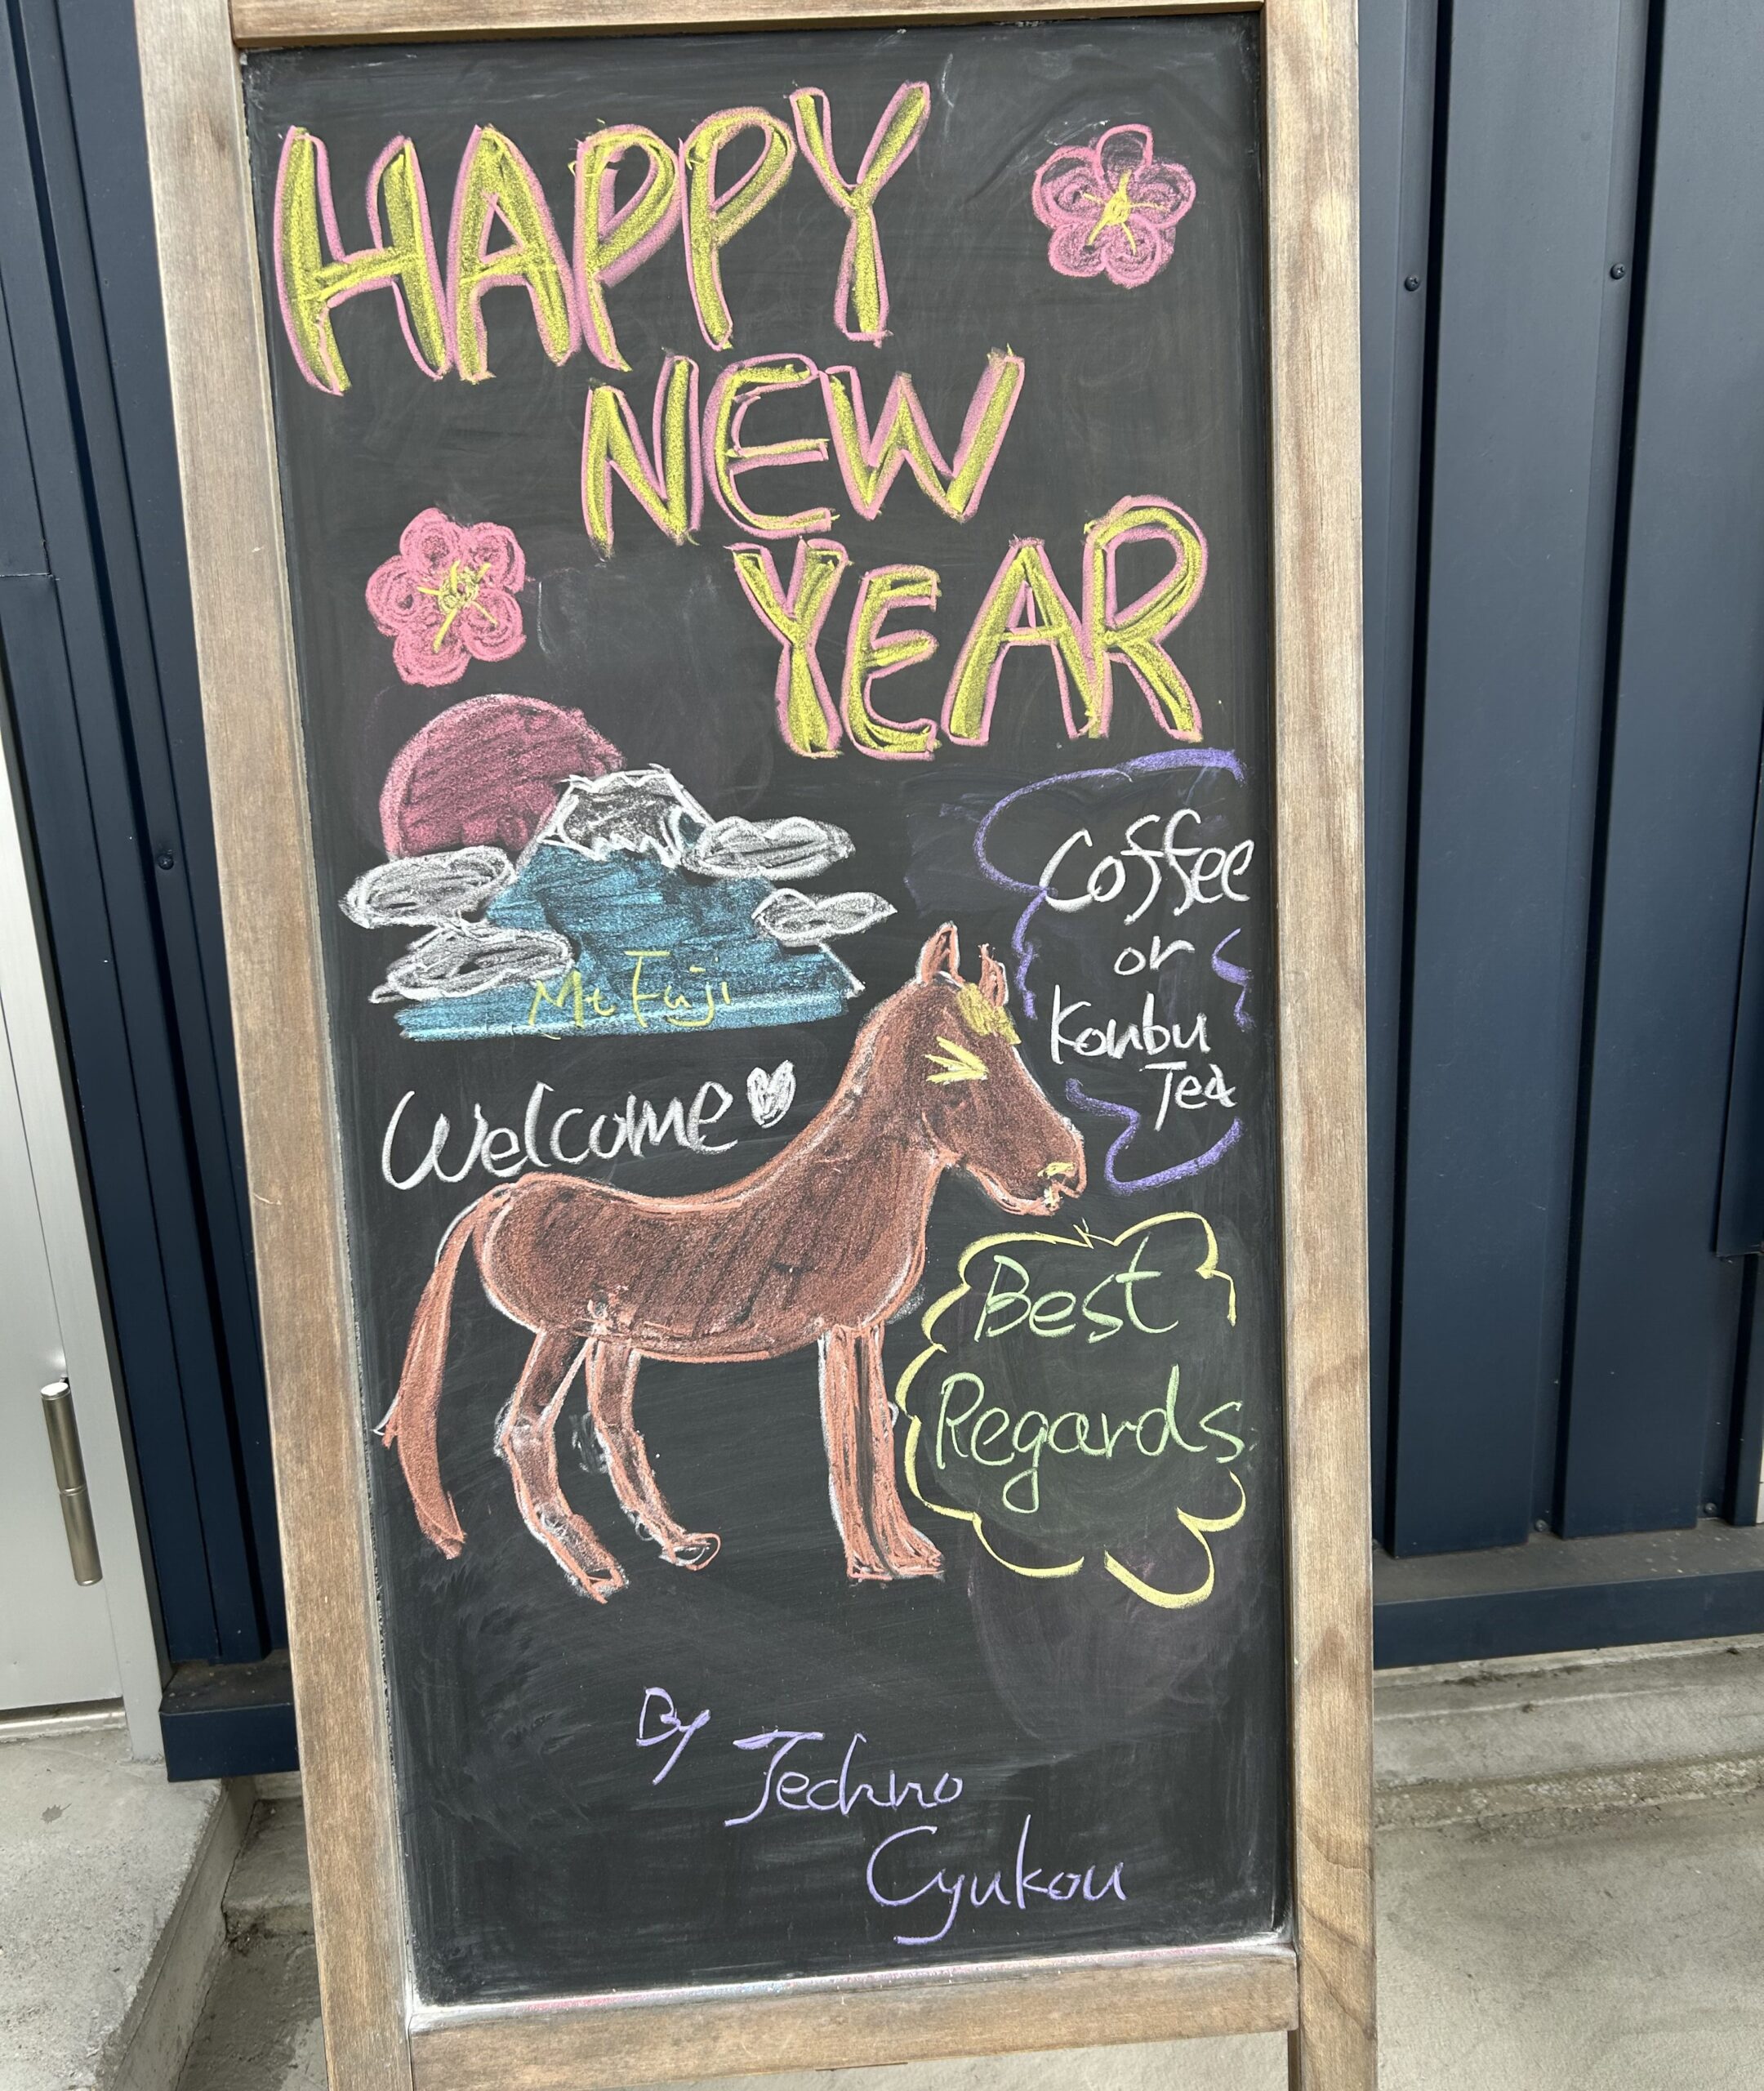 HAPPY
NEW
YEAR
Mt Fuji
Coffee
or
Konbu
Tea
Welcome
Best
Regards
By
Techno
Cyukou